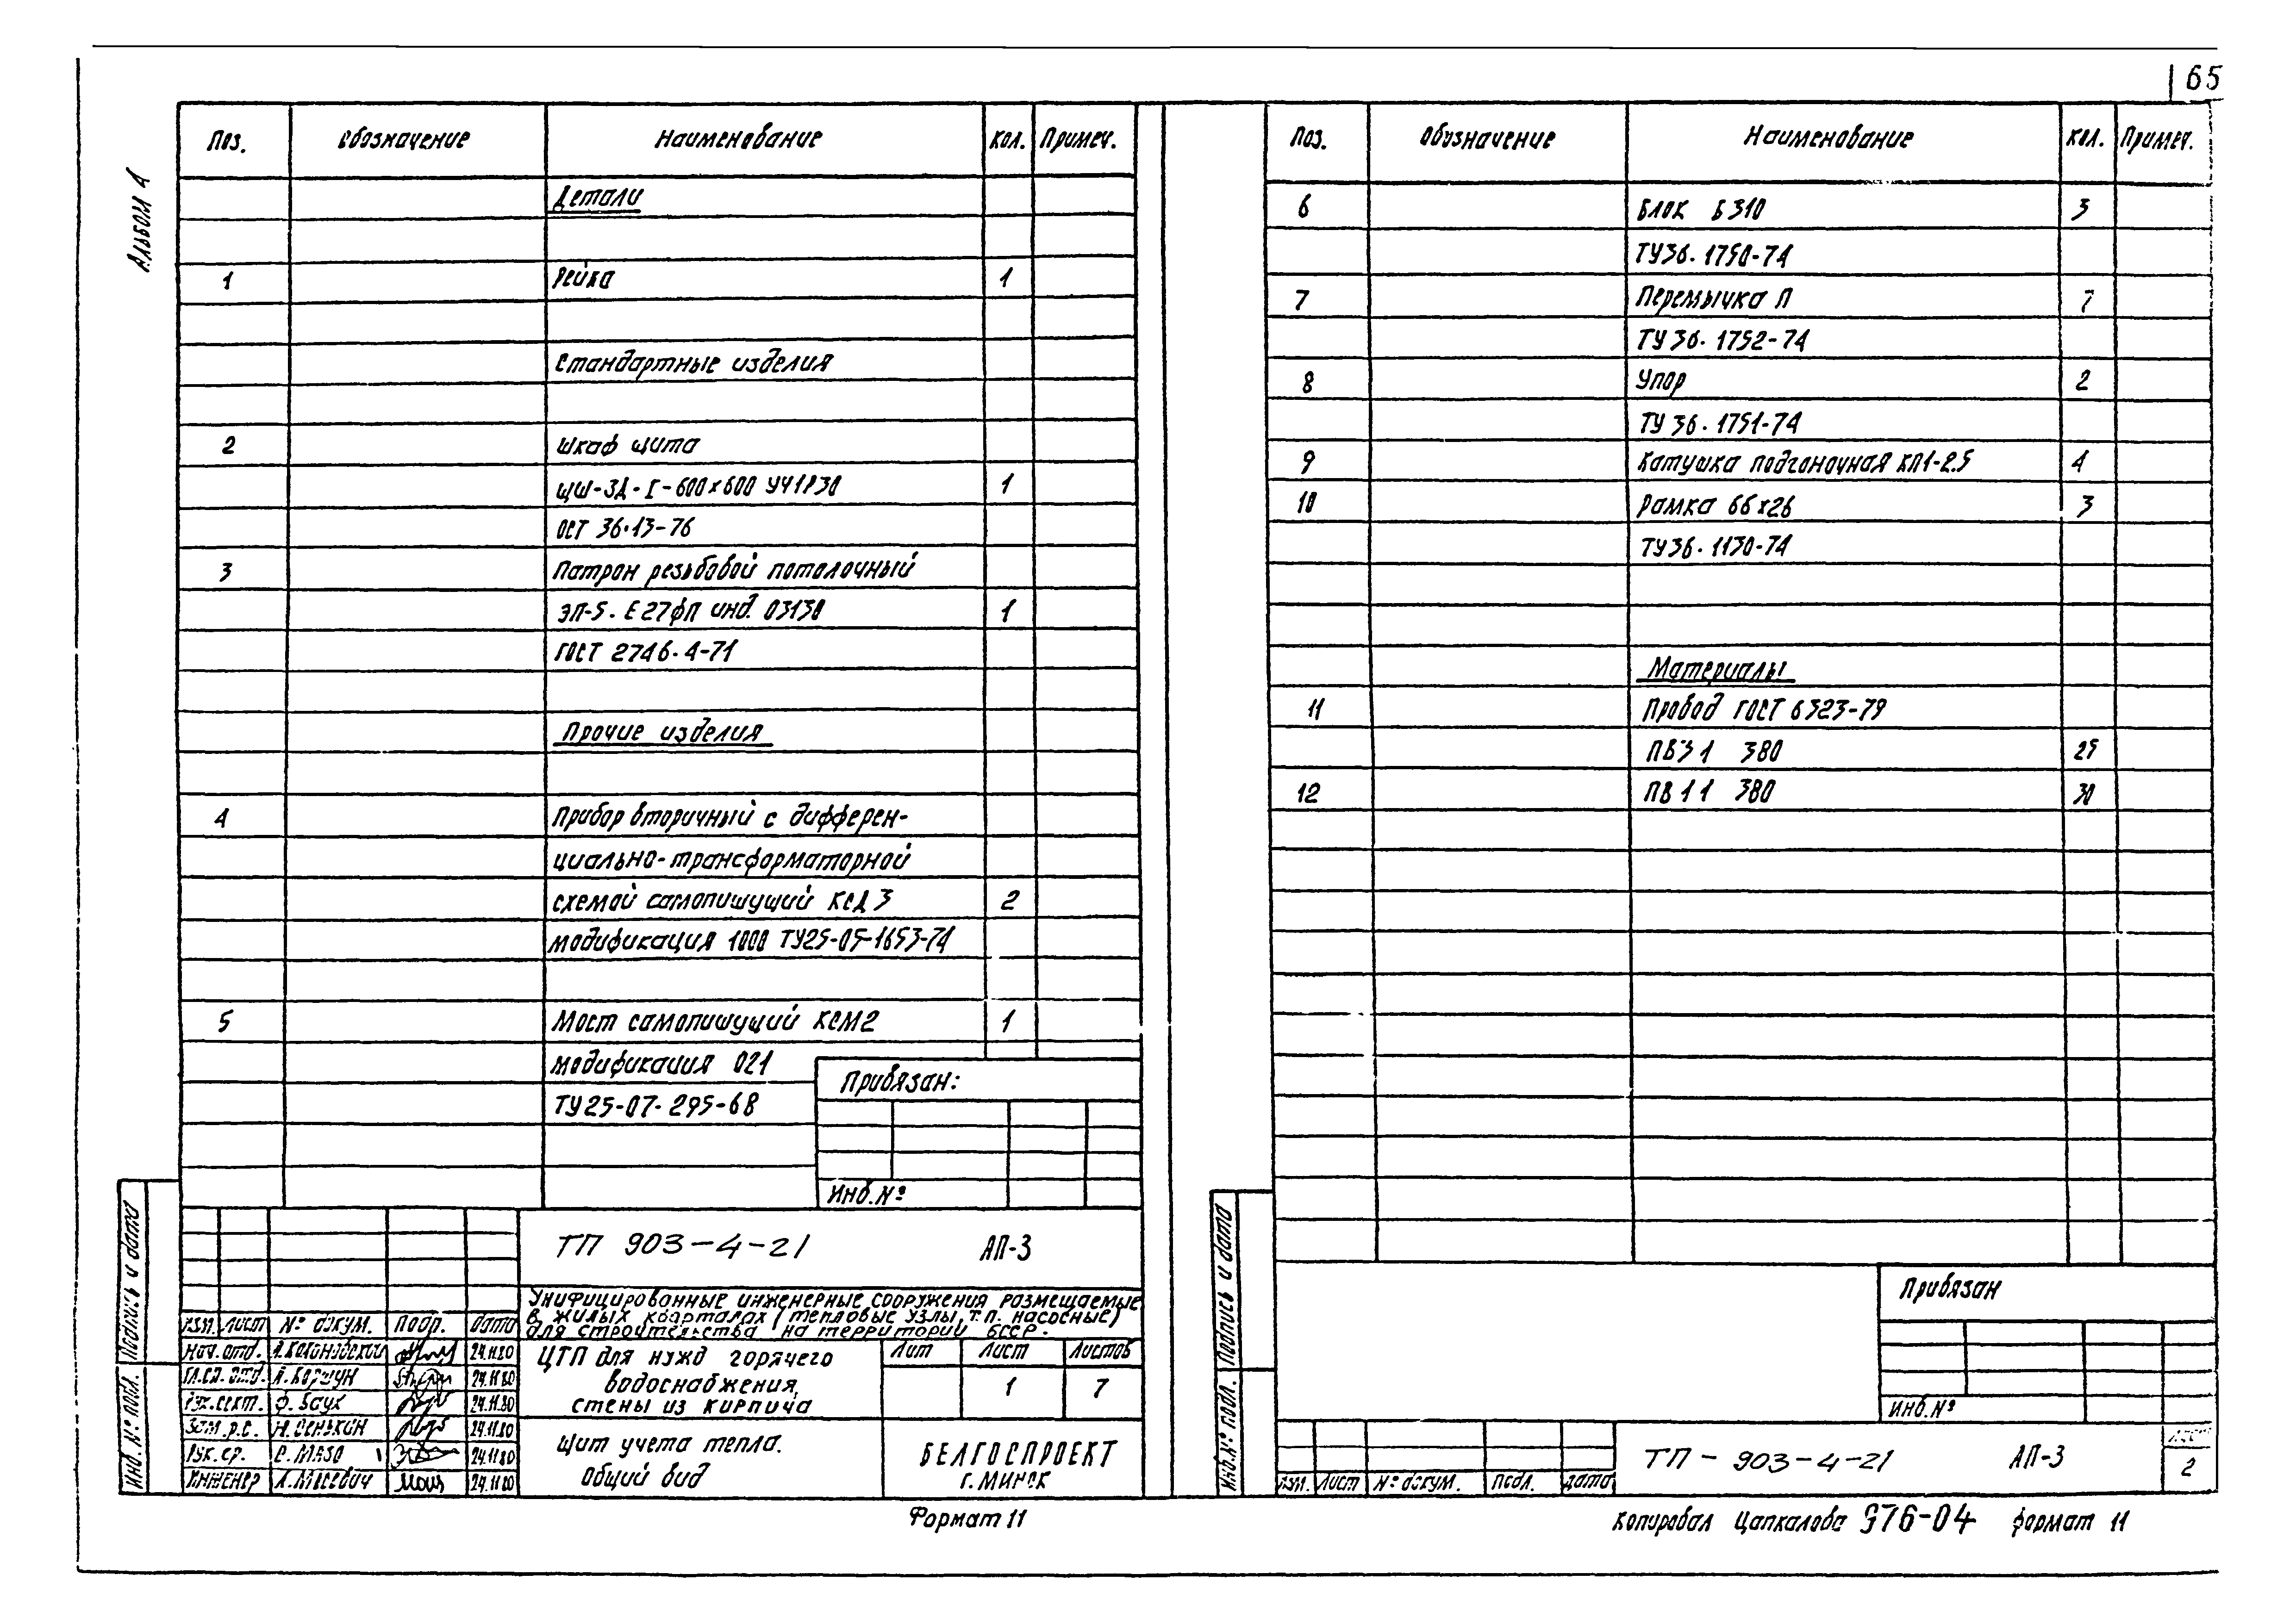 65
Альбом 4
Поз. Обозначение Наименование Кол. Примеч.
Детали
1 Рейка 1
Стандартные изделия
2 Шкаф щита
ЩШ-ЗД-I-600х600 УЧ1Р30 1
ОСТ 36.13-76
3 Патрон резьбовой потолочный
ЭЛ-5. Е27ФП инд. 03130 1
ГОСТ 2746.4-71
Прочие изделия
4 Прибор вторичный с дифферен-
циально-трансформаторной
схемой самопишущий КСД 3 2
модификация 1000 ТУ25-05-1653-74
5 Мост самопишущий КСМ2 1
модификация 021
ТУ25-07.295-68
Привязан:
Инв.№
ТП 903-4-21 АП-3
Унифицированные инженерные сооружения размещаемые
в жилых кварталах (тепловые узлы, т.п. насосные)
для строительства на территории БССР.
Изм. Лист № докум. Подп. Дата
Нач.отд. 24.11.80
Гл.сп.отд. А.Коршун 24.11.80
Рук.сект. Ф.Баух 24.11.80
Н.Сенькин 24.11.80
Рук.гр. Е.Мазо 24.11.80
Инженер 24.11.80
ЦТП для нужд горячего
водоснабжения,
стены из кирпича
Лит Лист Листов
1 7
Щит учета тепла.
Общий вид
БЕЛГОСПРОЕКТ
г. Минск
Подпись и дата
Инв.№ подл.
Формат 11
Поз. Обозначение Наименование Кол. Примеч.
6 Блок Б310 3
ТУ36.1750-74
7 Перемычка П 7
ТУ36.1752-74
8 Упор 2
ТУ 36.1751-74
9 Катушка подгоночная КП1-2.5 4
10 Рамка 66х26 3
ТУ36.1130-74
Материалы
11 Провод ГОСТ 6323-79
ПВ3 1 380 25
12 ПВ1 1 380 30
Привязан
Инв.№
Изм. Лист № докум. Подп. Дата
ТП - 903-4-21 АП-3
Лист
2
Подпись и дата
Инв.№ подл.
Копировал Цапкалова 976-04 формат 11